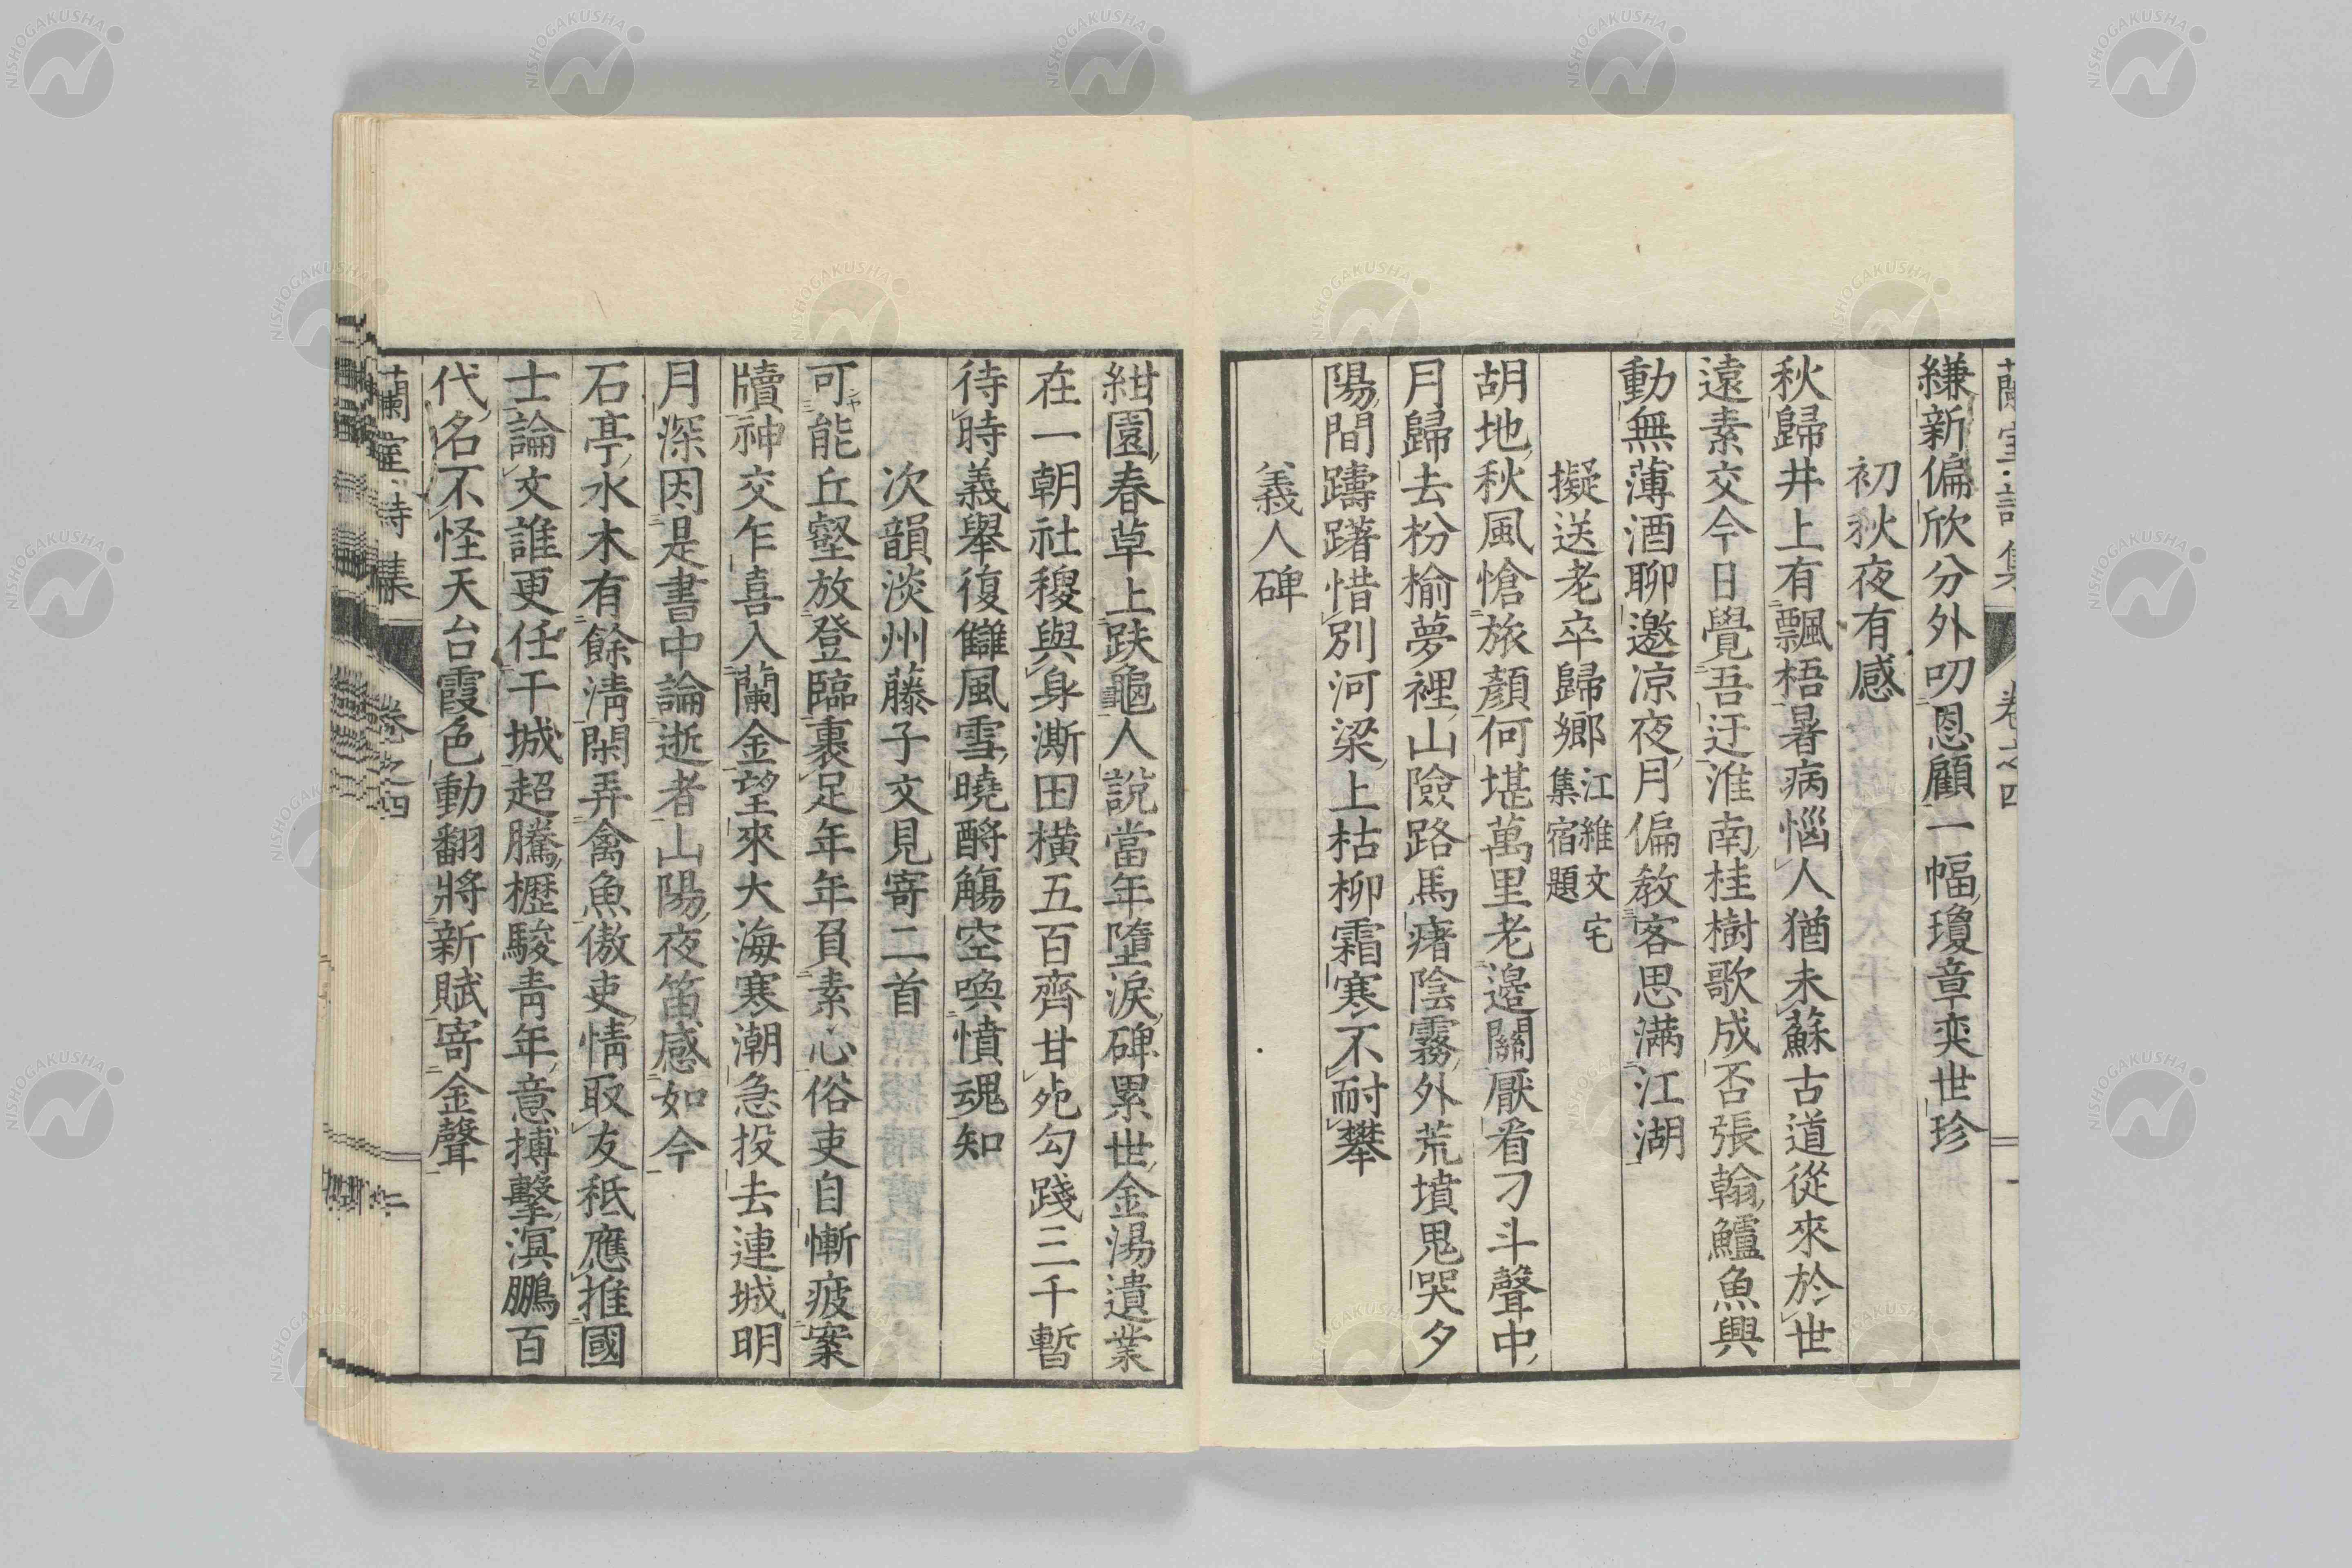 蘭室詩集 卷之四 一
縑新偏欣分外叨恩顧一幅瓊章奕世珍
初秋夜有感
秋歸井上有飄梧暑病惱人猶未蘇古道從來於世
遠素交今日覺吾迂淮南桂樹歌成否張翰鱸魚興
動無薄酒聊邀涼夜月偏教客思滿江湖
擬送老卒歸鄉 江維文宅集宿題
胡地秋風愴旅顏何堪萬里老邊關厭看刁斗聲中
月歸去枌榆夢裡山險路馬瘏陰霧外荒墳鬼哭夕
陽間躊躇惜別河梁上枯柳霜寒不耐攀
義人碑
紺園春草上趺龜人說當年墮淚碑累世金湯遺業
在一朝社稷與身澌田橫五百齊甘死勾踐三千暫
待時義舉復讎風雪曉酹觴空喚憤魂知
次韻淡州藤子文見寄二首
可能丘壑放登臨裹足年年負素心俗吏自慚疲案
牘神交乍喜入蘭金望來大海寒潮急投去連城明
月深因是書中論逝者山陽夜笛感如今
石亭水木有餘淸閑弄禽魚傲吏情取友秖應推國
士論文誰更任干城超騰櫪駿靑年意搏擊溟鵬百
代名不怪天台霞色動翻將新賦寄金聲
蘭室詩集 卷之四 二
NISHOGAKUSHA